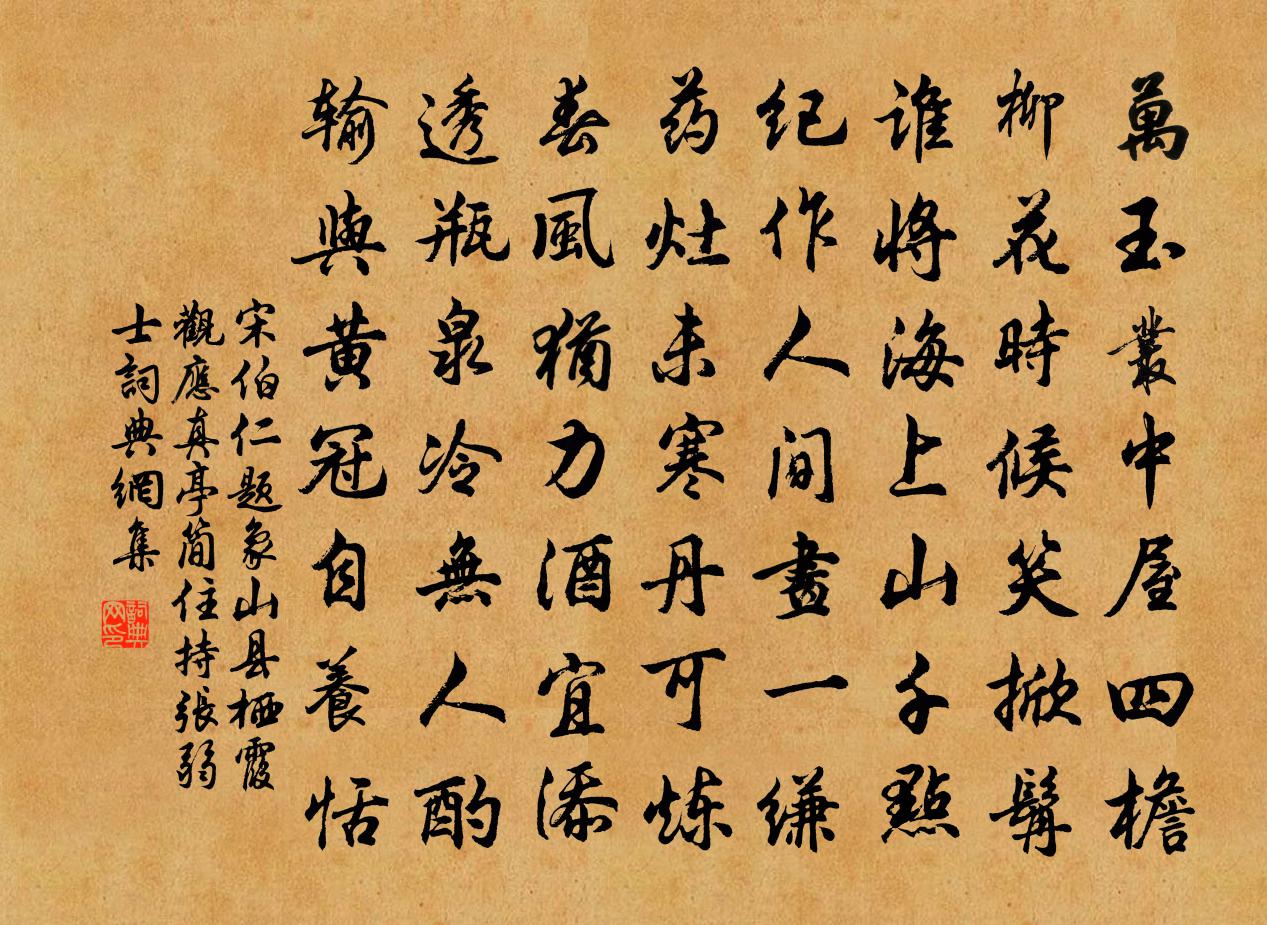 萬玉叢中屋四檐
柳花時候笑掀髯
誰將海上山千點
纪作人间畫一缣
药灶未寒丹可炼
春風猶力酒宜添
透瓶泉冷無人酌
输與黄冠自養恬
宋伯仁題象山县栖霞
觀應真亭简住持張弱
士詞典網集
詞典网印